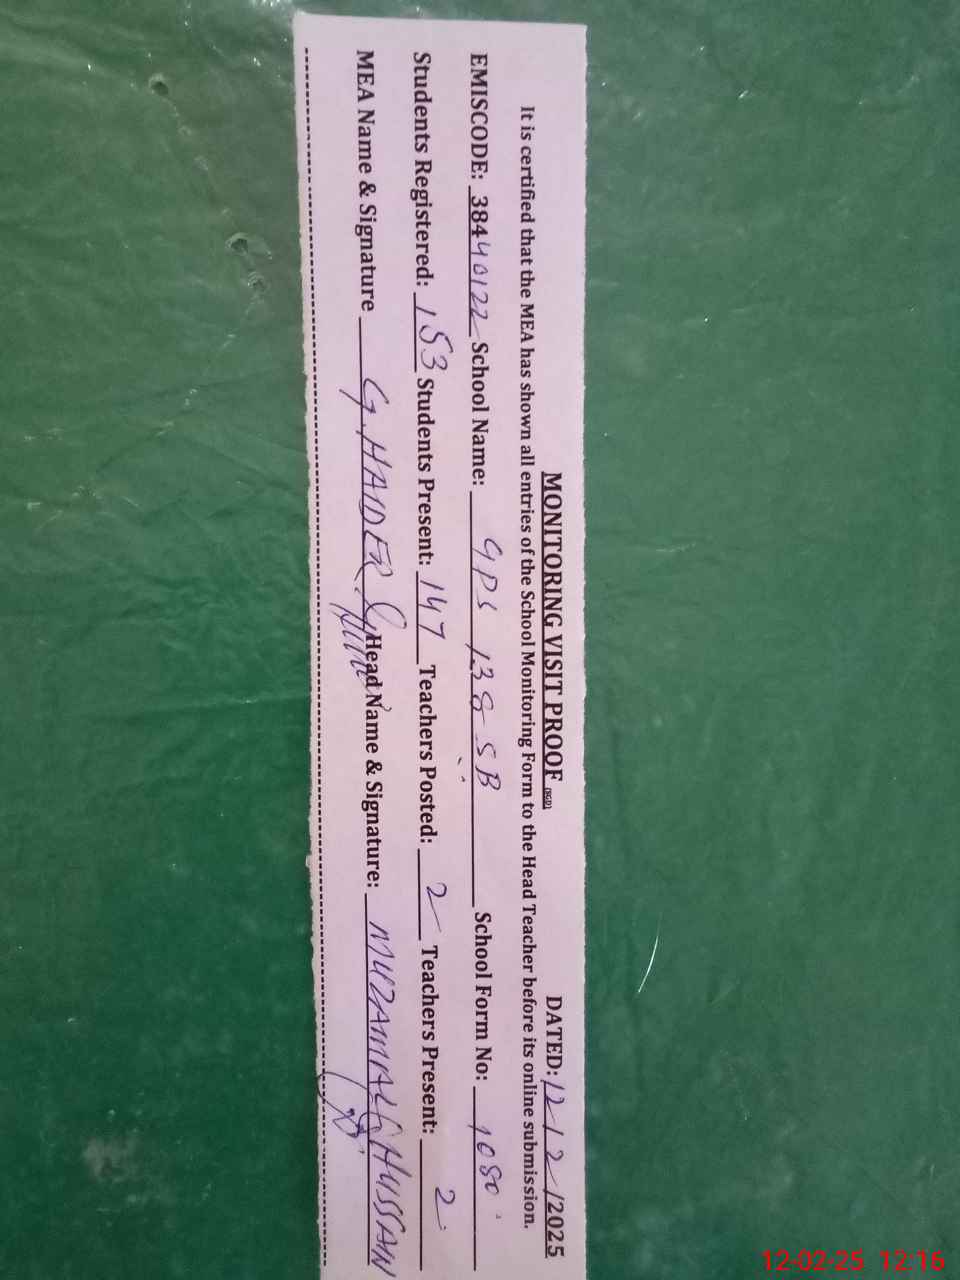 MONITORING VISIT PROOF (SGD) DATED: 12-12/2025
It is certified that the MEA has shown all entries of the School Monitoring Form to the Head Teacher before its online submission.
EMISCODE: 38440122 School Name: GPS 138-SB School Form No: 1080
Students Registered: 153 Students Present: 147 Teachers Posted: 2 Teachers Present: 2
MEA Name & Signature G. HAIDER Head Name & Signature: MUZAMAL HUSSAIN
12-02-25 12:16